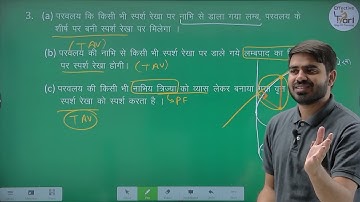 Effective
3. (a) परवलय कि किसी भी स्पर्श रेखा पर नाभि से डाला गया लम्ब, परवलय के
शीर्ष पर बनी स्पर्श रेखा पर मिलेगा ।
(TAV)
(b) परवलय की नाभि से किसी भी स्पर्श रेखा पर डाले गये लम्बपाद का
पर स्पर्श रेखा होगी। (TAV)
(c) परवलय की किसी भी नाभिय त्रिज्या को व्यास लेकर बनाया गया वृत्त
स्पर्श रेखा को स्पर्श करता है । SPF
(TAV)